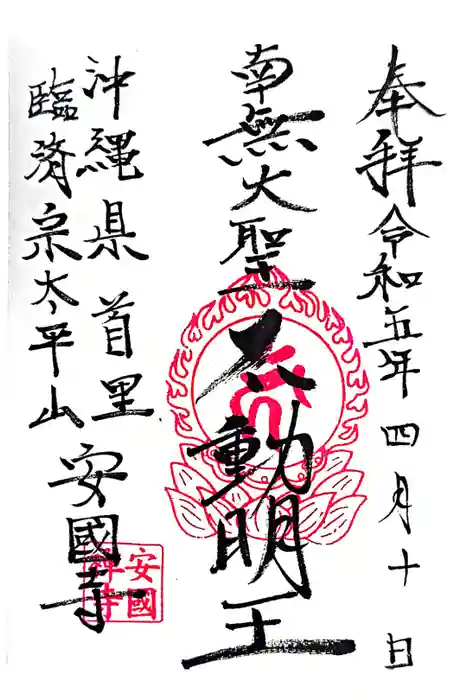 奉拝 令和五年四月十日
南無大聖不動明王
沖縄県 首里
臨済宗太平山
安國寺
安國禅寺